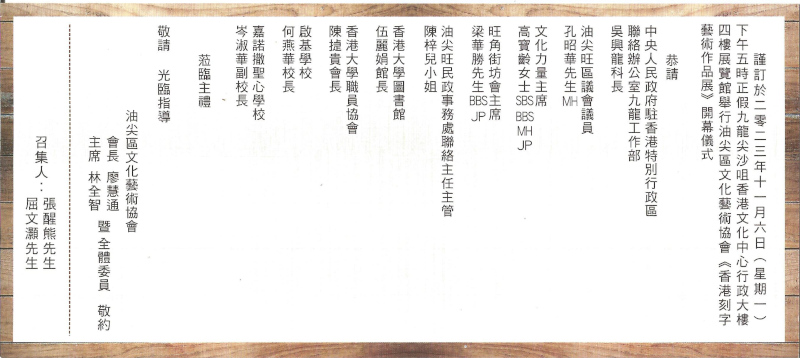 謹訂於二零二三年十一月六日（星期一）
下午五時正假九龍尖沙咀香港文化中心行政大樓
四樓展覽館舉行油尖區文化藝術協會《香港刻字
藝術作品展》開幕儀式
恭請
中央人民政府駐香港特別行政區
聯絡辦公室九龍工作部
吳興龍科長
油尖旺區議會議員
孔昭華先生MH
文化力量主席
高寶齡女士SBS BBS MH JP
旺角街坊會主席
梁華勝先生BBS JP
油尖旺民政事務處聯絡主任主管
陳梓兒小姐
香港大學圖書館
伍麗娟館長
香港大學職員協會
陳捷貴會長
啟基學校
何燕華校長
嘉諾撒聖心學校
岑淑華副校長
蒞臨主禮
敬請 光臨指導
油尖區文化藝術協會
會長 廖慧通
主席 林全智
暨 全體委員 敬約
召集人：張醒熊先生
屈文灝先生